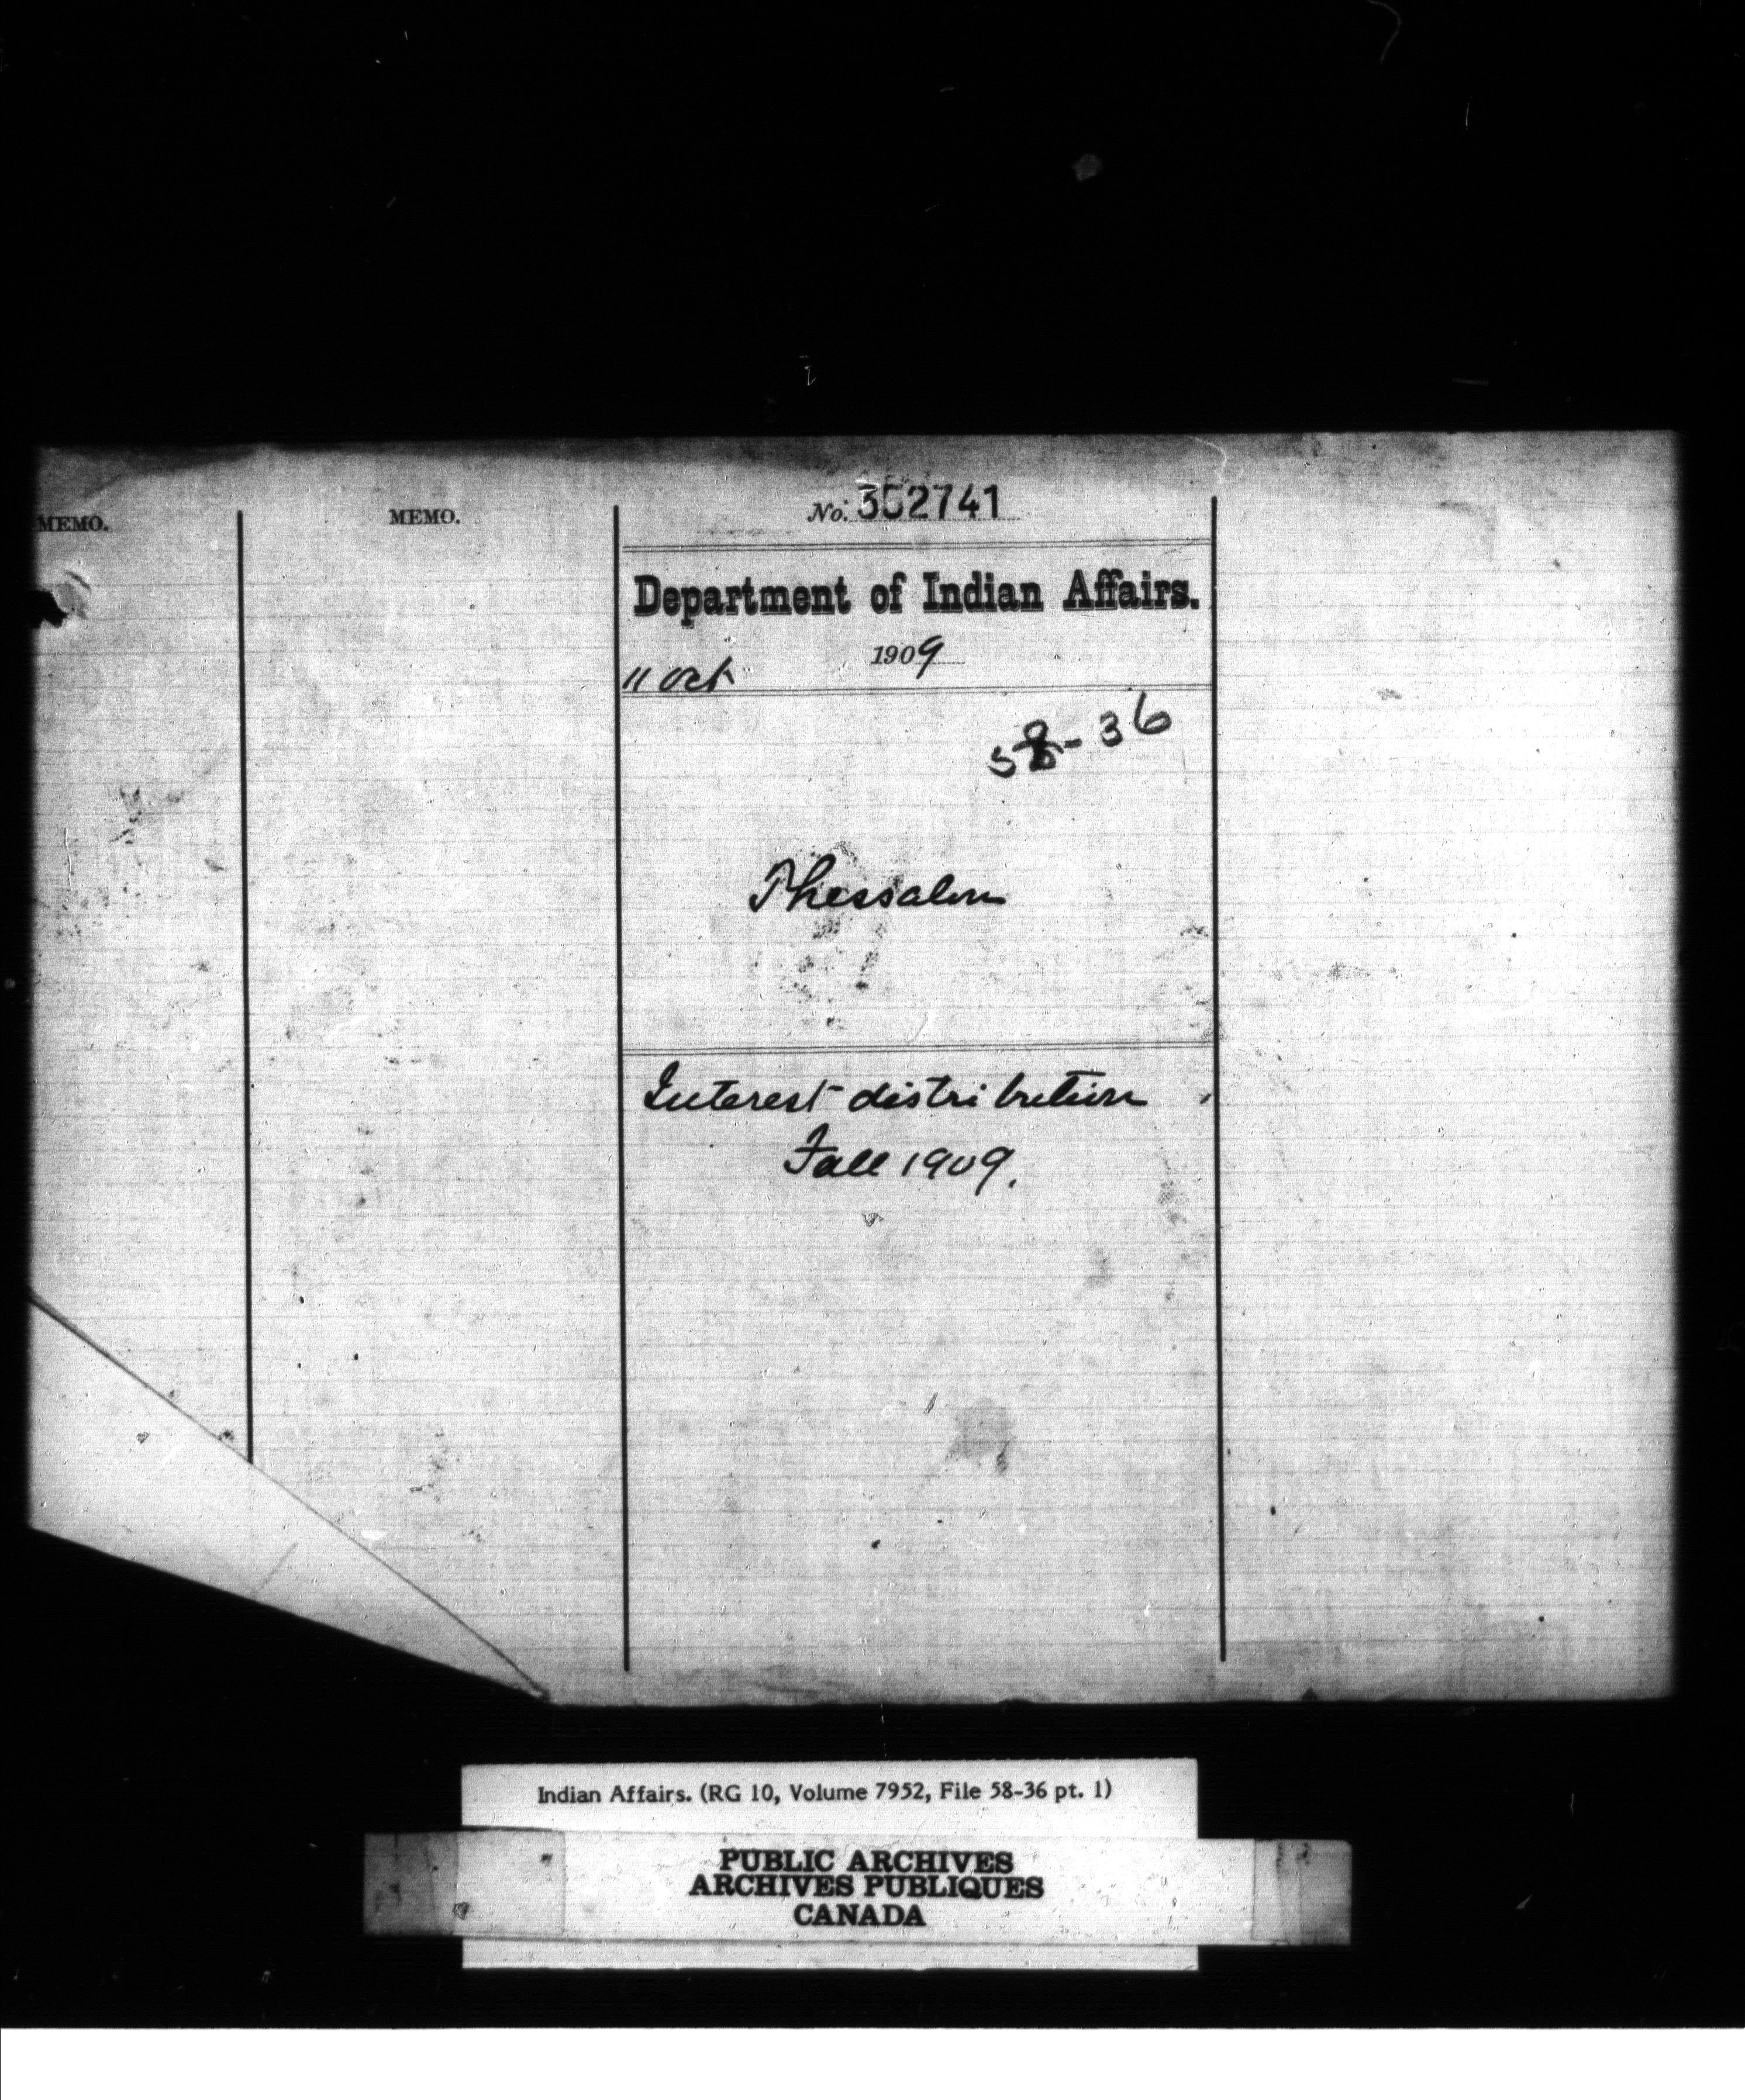 MEMO.
MEMO.
No. 352741
Department of Indian Affairs.
11 Oct 1909
58-36
Thessalon
Interest distribution
Fall 1909.
Indian Affairs. (RG 10, Volume 7952, File 58-36 pt. 1)
PUBLIC ARCHIVES
ARCHIVES PUBLIQUES
CANADA